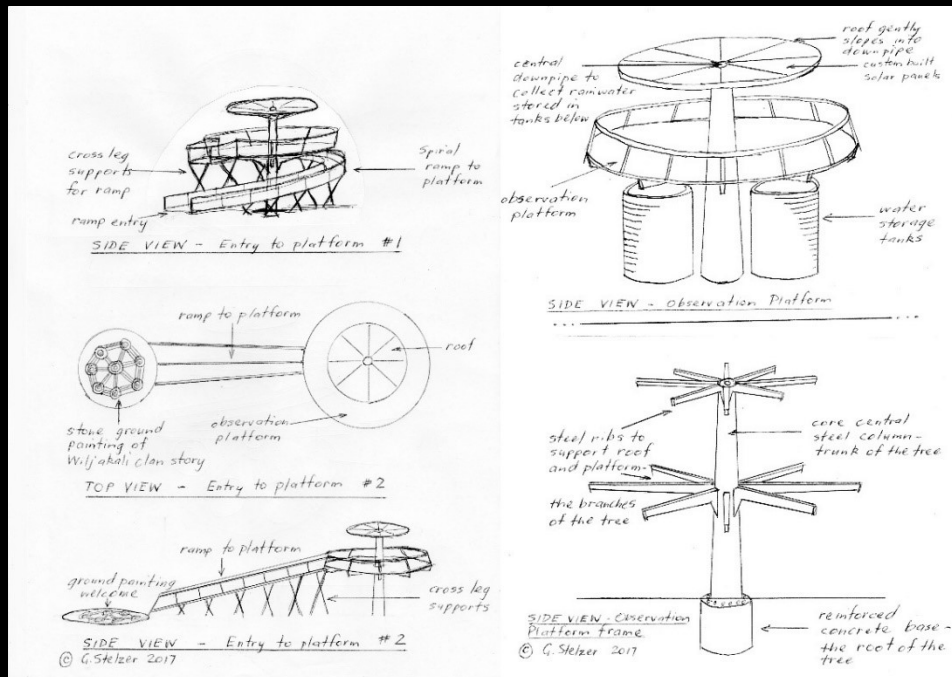 cross leg
supports
for ramp
ramp entry
Spiral
ramp to
platform
SIDE VIEW - Entry to platform #1
ramp to platform
roof
stone ground
painting of
Wiljakali clan story
observation
platform
TOP VIEW - Entry to platform #2
ramp to platform
ground painting
welcome
cross leg
supports
SIDE VIEW - Entry to platform #2
© G. Stelzer 2017
roof gently
slopes into
downpipe
custom built
solar panels
central
downpipe to
collect rainwater
stored in
tanks below
observation
platform
water
storage
tanks
SIDE VIEW - Observation Platform
steel ribs to
support roof
and platform-
the branches
of the tree
core central
steel column-
trunk of the tree
SIDE VIEW - Observation
Platform frame
© G. Stelzer 2017
reinforced
concrete base-
the root of the
tree